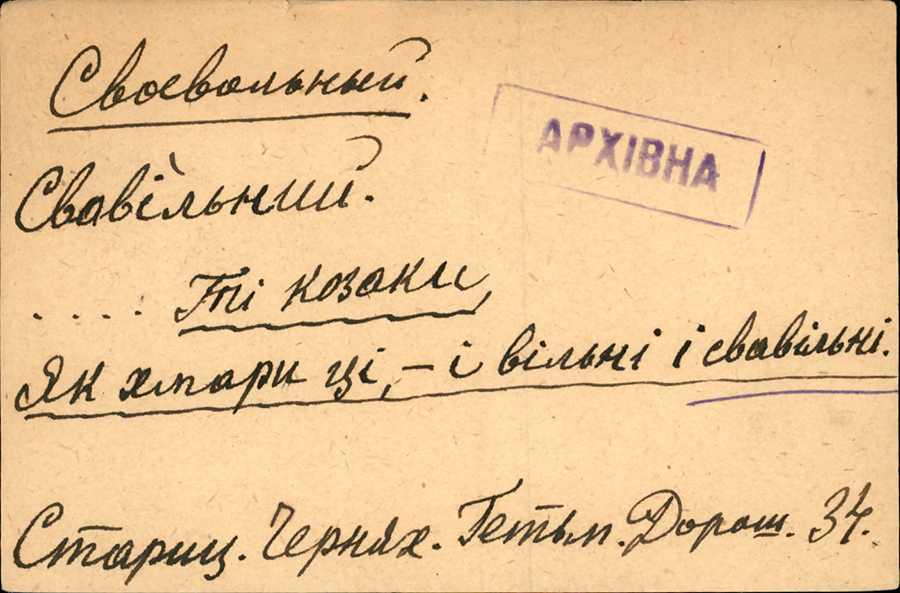 Своевольный.
АРХІВНА
Свавільний.
.... Ті козаки,
Як хмари ці, – і вільні і свавільні.
Стариц. Чернях. Гетьм. Дорош. 34.